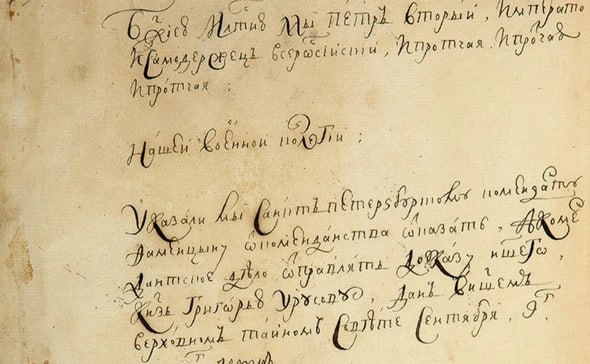 Бжиею Млтию Мы Петръ Вторыи, Императо
и Самодержецъ всеросиискии, и протчая и протчая
и протчая:
Нашей военной колегии:
Указали мы Санктъ петерз бургскому коменданту
отказать, а коме
дантское дѣло отправлять до указу ншего,
Кнзь Григорью Урусову, данъ в ншемъ
верховномъ таиномъ Совѣте Сентября, 9г